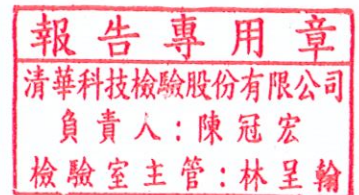 報告專用章
清華科技檢驗股份有限公司
負責人：陳冠宏
檢驗室主管：林呈翰